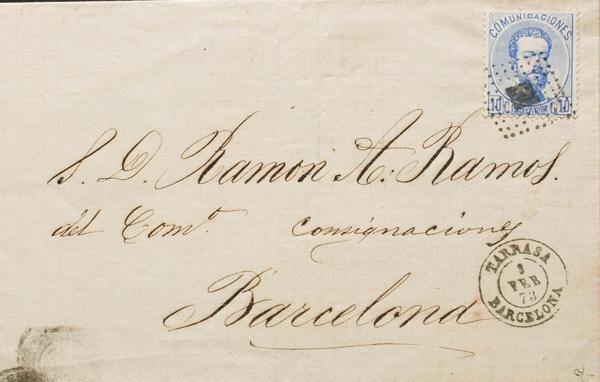 COMUNICACIONES
10 Cs ESPAÑA Cs 10
S. D. Ramon A. Ramos.
del Comº. Consignaciones
Barcelona
TARRASA
3
FEB
73
BARCELONA